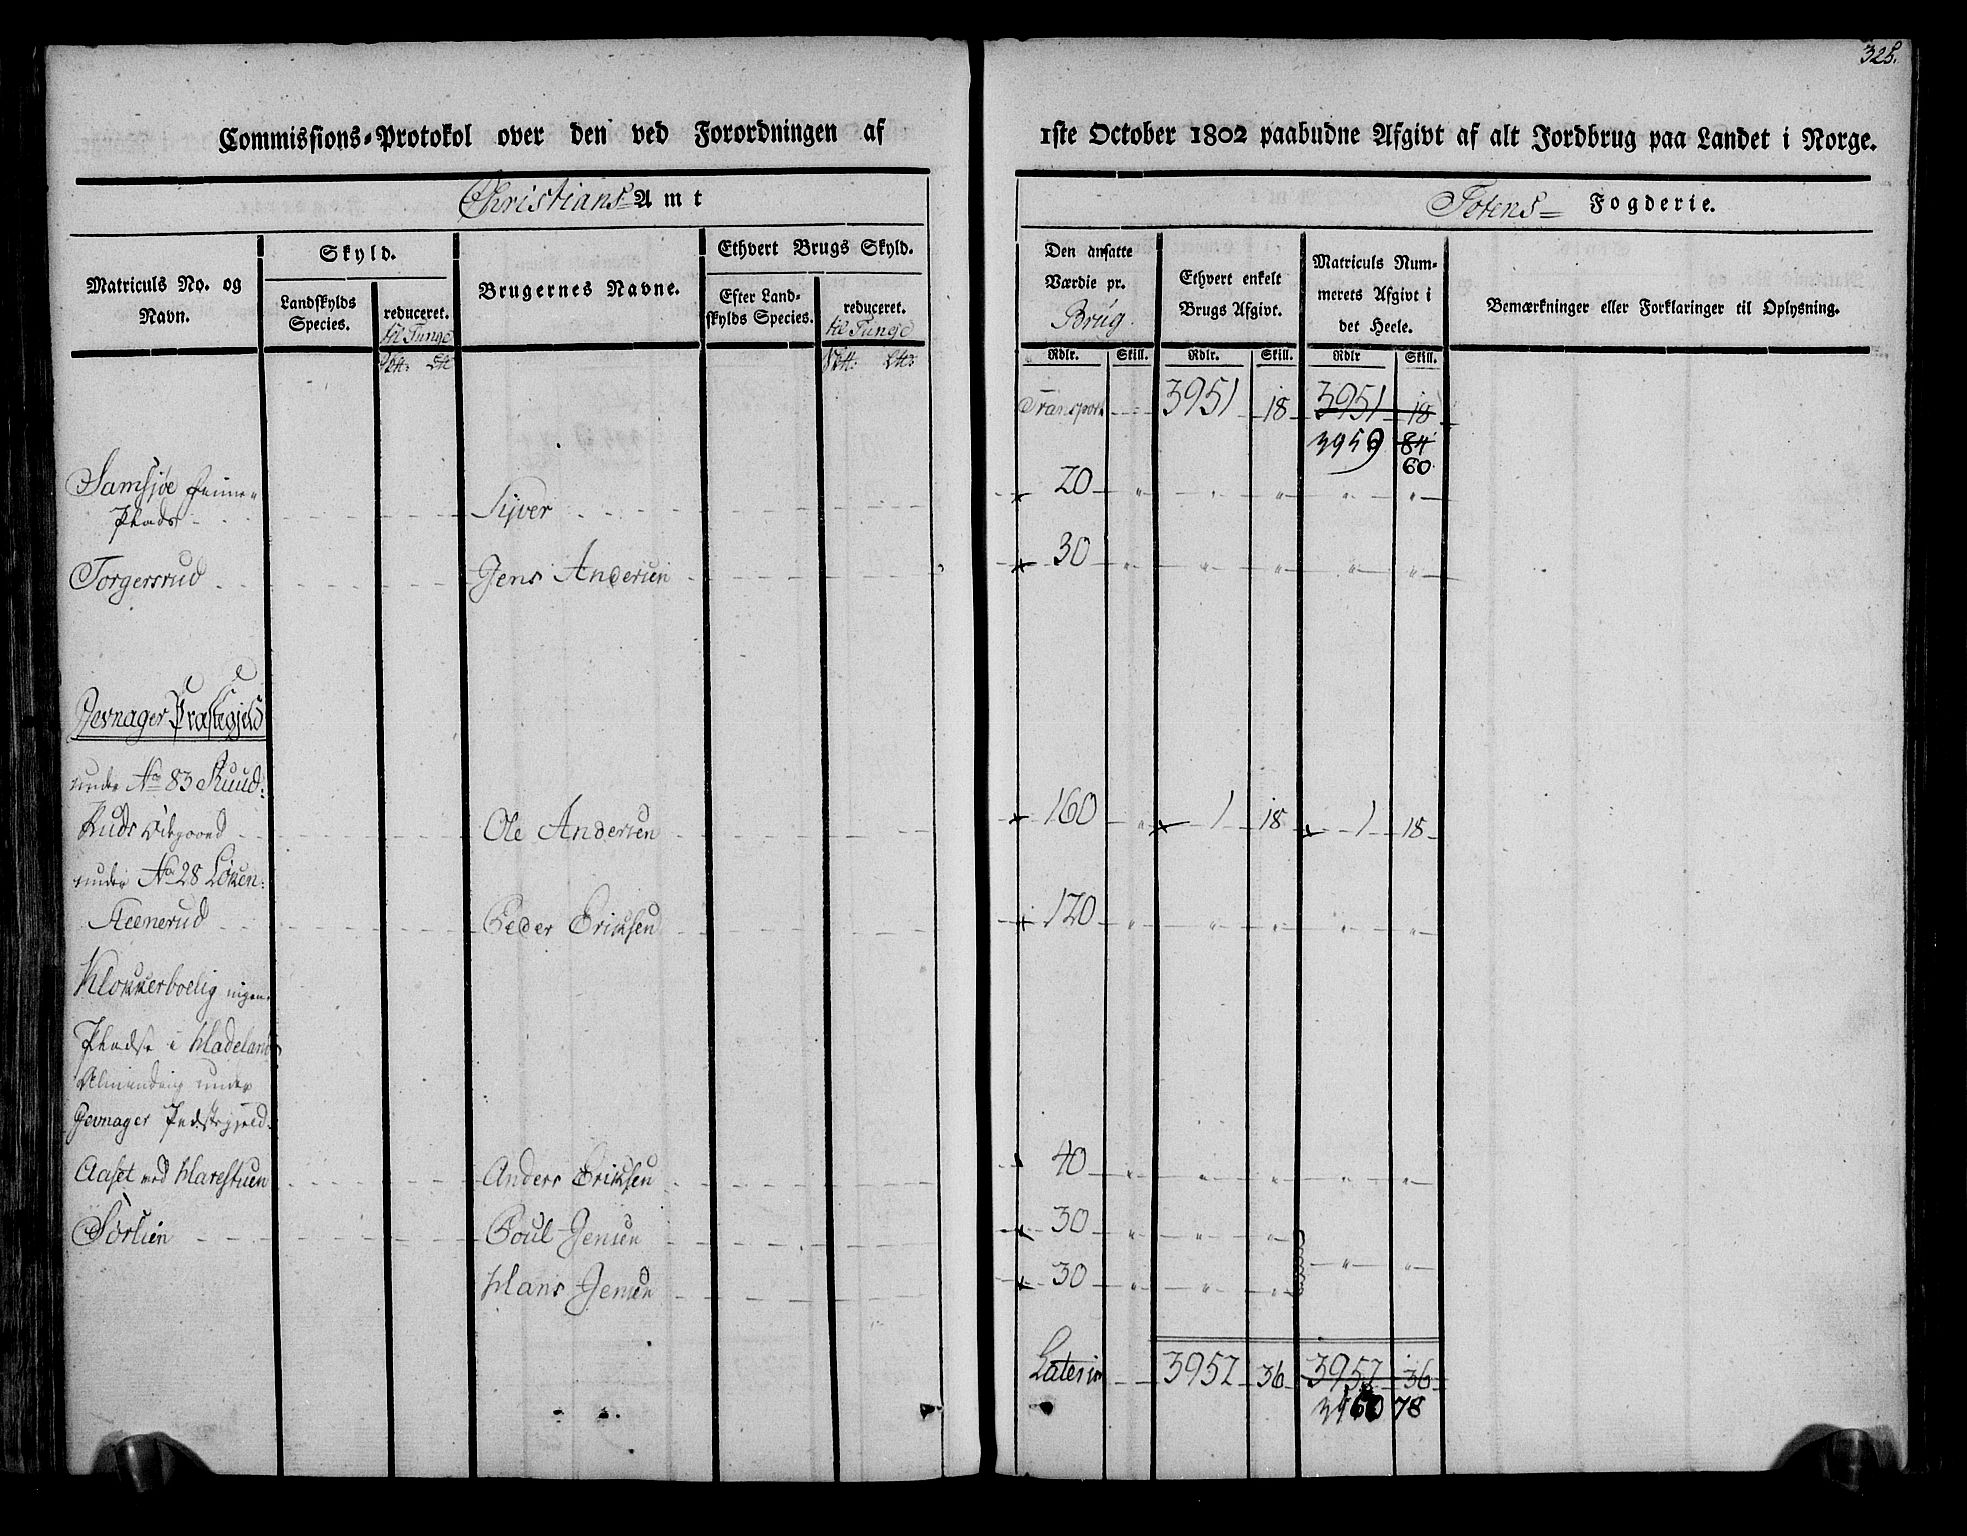 328.
Commissions-Protokol over den ved Forordningen af 1ste October 1802 paabudne Afgivt af alt Jordbrug paa Landet i Norge.
Christians Amt
Totens Fogderie.
Matriculs No. og Navn.
Skyld.
Landskylds Species.
reduceret. til Tunge
Brugernes Navne.
Ethvert Brugs Skyld.
Efter Landskylds Species.
reduceret. til Tunge
Den ansatte Værdie pr. Brug.
Ethvert enkelt Brugs Afgivt.
Matriculs Nummerets Afgivt i det Heele.
Bemærkninger eller Forklaringer til Oplysning.
Rdlr. Skill. Rdlr. Skill. Rdlr Skill.
Transport 3951 18 3951 18
3959 84
60
Samsjøe
Plads Syver 20 " " " " "
Torgersrud Jens Andersen 30 " " " " "
Jevnager Præstegjeld
under No 83 Ruud:
Ruds Ødegaard Ole Andersen 160 " 1 18 1 18
under No 28 Løken:
Steenerud Peder Eriksen 120 " " " " "
Klokkerboelig ingen
Pladse i Hadeland
Almindig under
Jevnager Præstegjeld
Aaset ved Harestuen Anders Eriksen 40 " " " " "
Sørlien Poul Jensen 30 " " "
" "
Hans Jensen 30 " " "
Lateris 3952 36 3952 36
3960 78